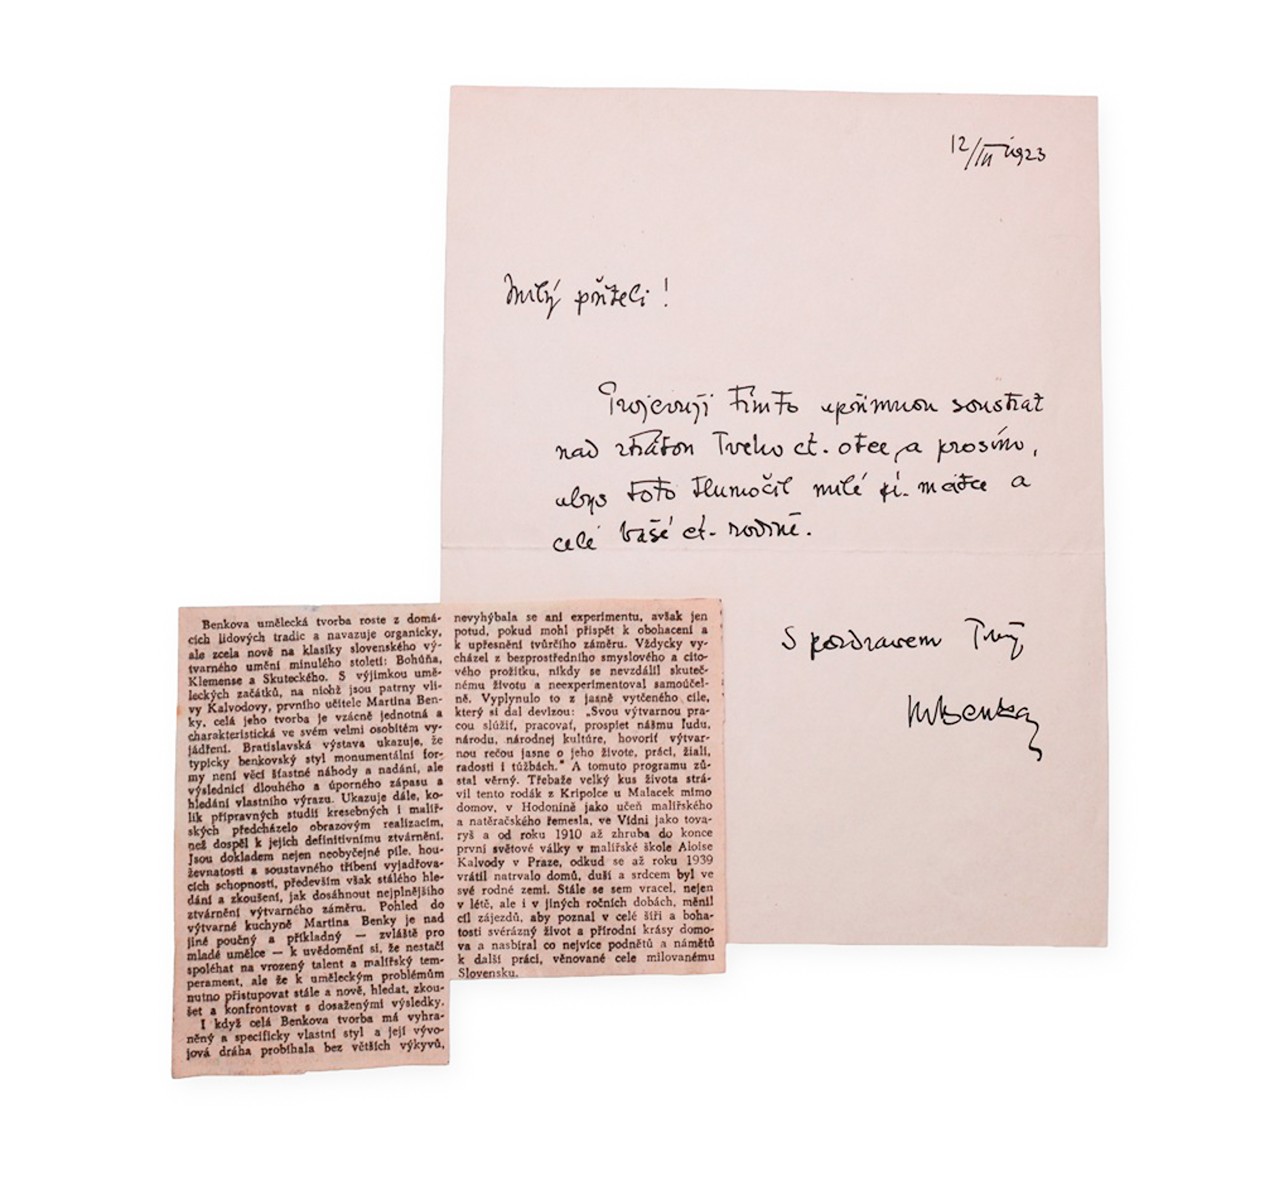 12/III 1923
Milý příteli!
Projevuji tímto upřímnou soustrast
nad ztrátou Tvého ct. otce, a prosím,
abys toto tlumočil milé pí. matce a
celé vaší ct. rodině.
S pozdravem Tvůj
MBenka
Benkova umělecká tvorba roste z domá-
cích lidových tradic a navazuje organicky,
ale zcela nově na klasiky slovenského vý-
tvarného umění minulého století: Bohúňa,
Klemense a Skuteckého. S výjimkou umě-
leckých začátků, na nichž jsou patrny vli-
vy Kalvodovy, prvního učitele Martina Ben-
ky, celá jeho tvorba je vzácně jednotná a
charakteristická ve svém velmi osobitém vy-
jádření. Bratislavská výstava ukazuje, že
typicky benkovský styl monumentální for-
my není věcí šťastné náhody a nadání, ale
výslednicí dlouhého a úporného zápasu a
hledání vlastního výrazu. Ukazuje dále, ko-
lik přípravných studií kresebných i malíř-
ských předcházelo obrazovým realizacím,
než dospěl k jejich definitivnímu ztvárnění.
Jsou dokladem nejen neobyčejné píle, hou-
ževnatosti a soustavného tříbení vyjadřova-
cích schopností, především však stálého hle-
dání a zkoušení, jak dosáhnout nejplnějšího
ztvárnění výtvarného záměru. Pohled do
výtvarné kuchyně Martina Benky je nad
jiné poučný a příkladný — zvláště pro
mladé umělce — k uvědomění si, že nestačí
spoléhat na vrozený talent a malířský tem-
perament, ale že k uměleckým problémům
nutno přistupovat stále a nově, hledat, zkou-
šet a konfrontovat s dosaženými výsledky.
I když celá Benkova tvorba má vyhra-
něný a specificky vlastní styl a její vývo-
jová dráha probíhala bez větších výkyvů,
nevyhýbala se ani experimentu, avšak jen
potud, pokud mohl přispět k obohacení a
k upřesnění tvůrčího záměru. Vždycky vy-
cházel z bezprostředního smyslového a cito-
vého prožitku, nikdy se nevzdálil skuteč-
nému životu a neexperimentoval samoúčel-
ně. Vyplynulo to z jasně vytčeného cíle,
který si dal devizou: „Svou výtvarnou pra-
cou slúžiť, pracovať, prospieť nášmu ľudu,
národu, národnej kultúre, hovoriť výtvar-
nou rečou jasne o jeho živote, práci, žiali,
radosti i túžbách." A tomuto programu zů-
stal věrný. Třebaže velký kus života strá-
vil tento rodák z Kripolce u Malacek mimo
domov, v Hodoníně jako učeň malířského
a natěračského řemesla, ve Vídni jako tova-
ryš a od roku 1910 až zhruba do konce
první světové války v malířské škole Aloise
Kalvody v Praze, odkud se až roku 1939
vrátil natrvalo domů, duší a srdcem byl ve
své rodné zemi. Stále se sem vracel, nejen
v létě, ale i v jiných ročních dobách, měnil
cíl zájezdů, aby poznal v celé šíři a boha-
tosti svérázný život a přírodní krásy domo-
va a nasbíral co nejvíce podnětů a námětů
k další práci, věnované cele milovanému
Slovensku.